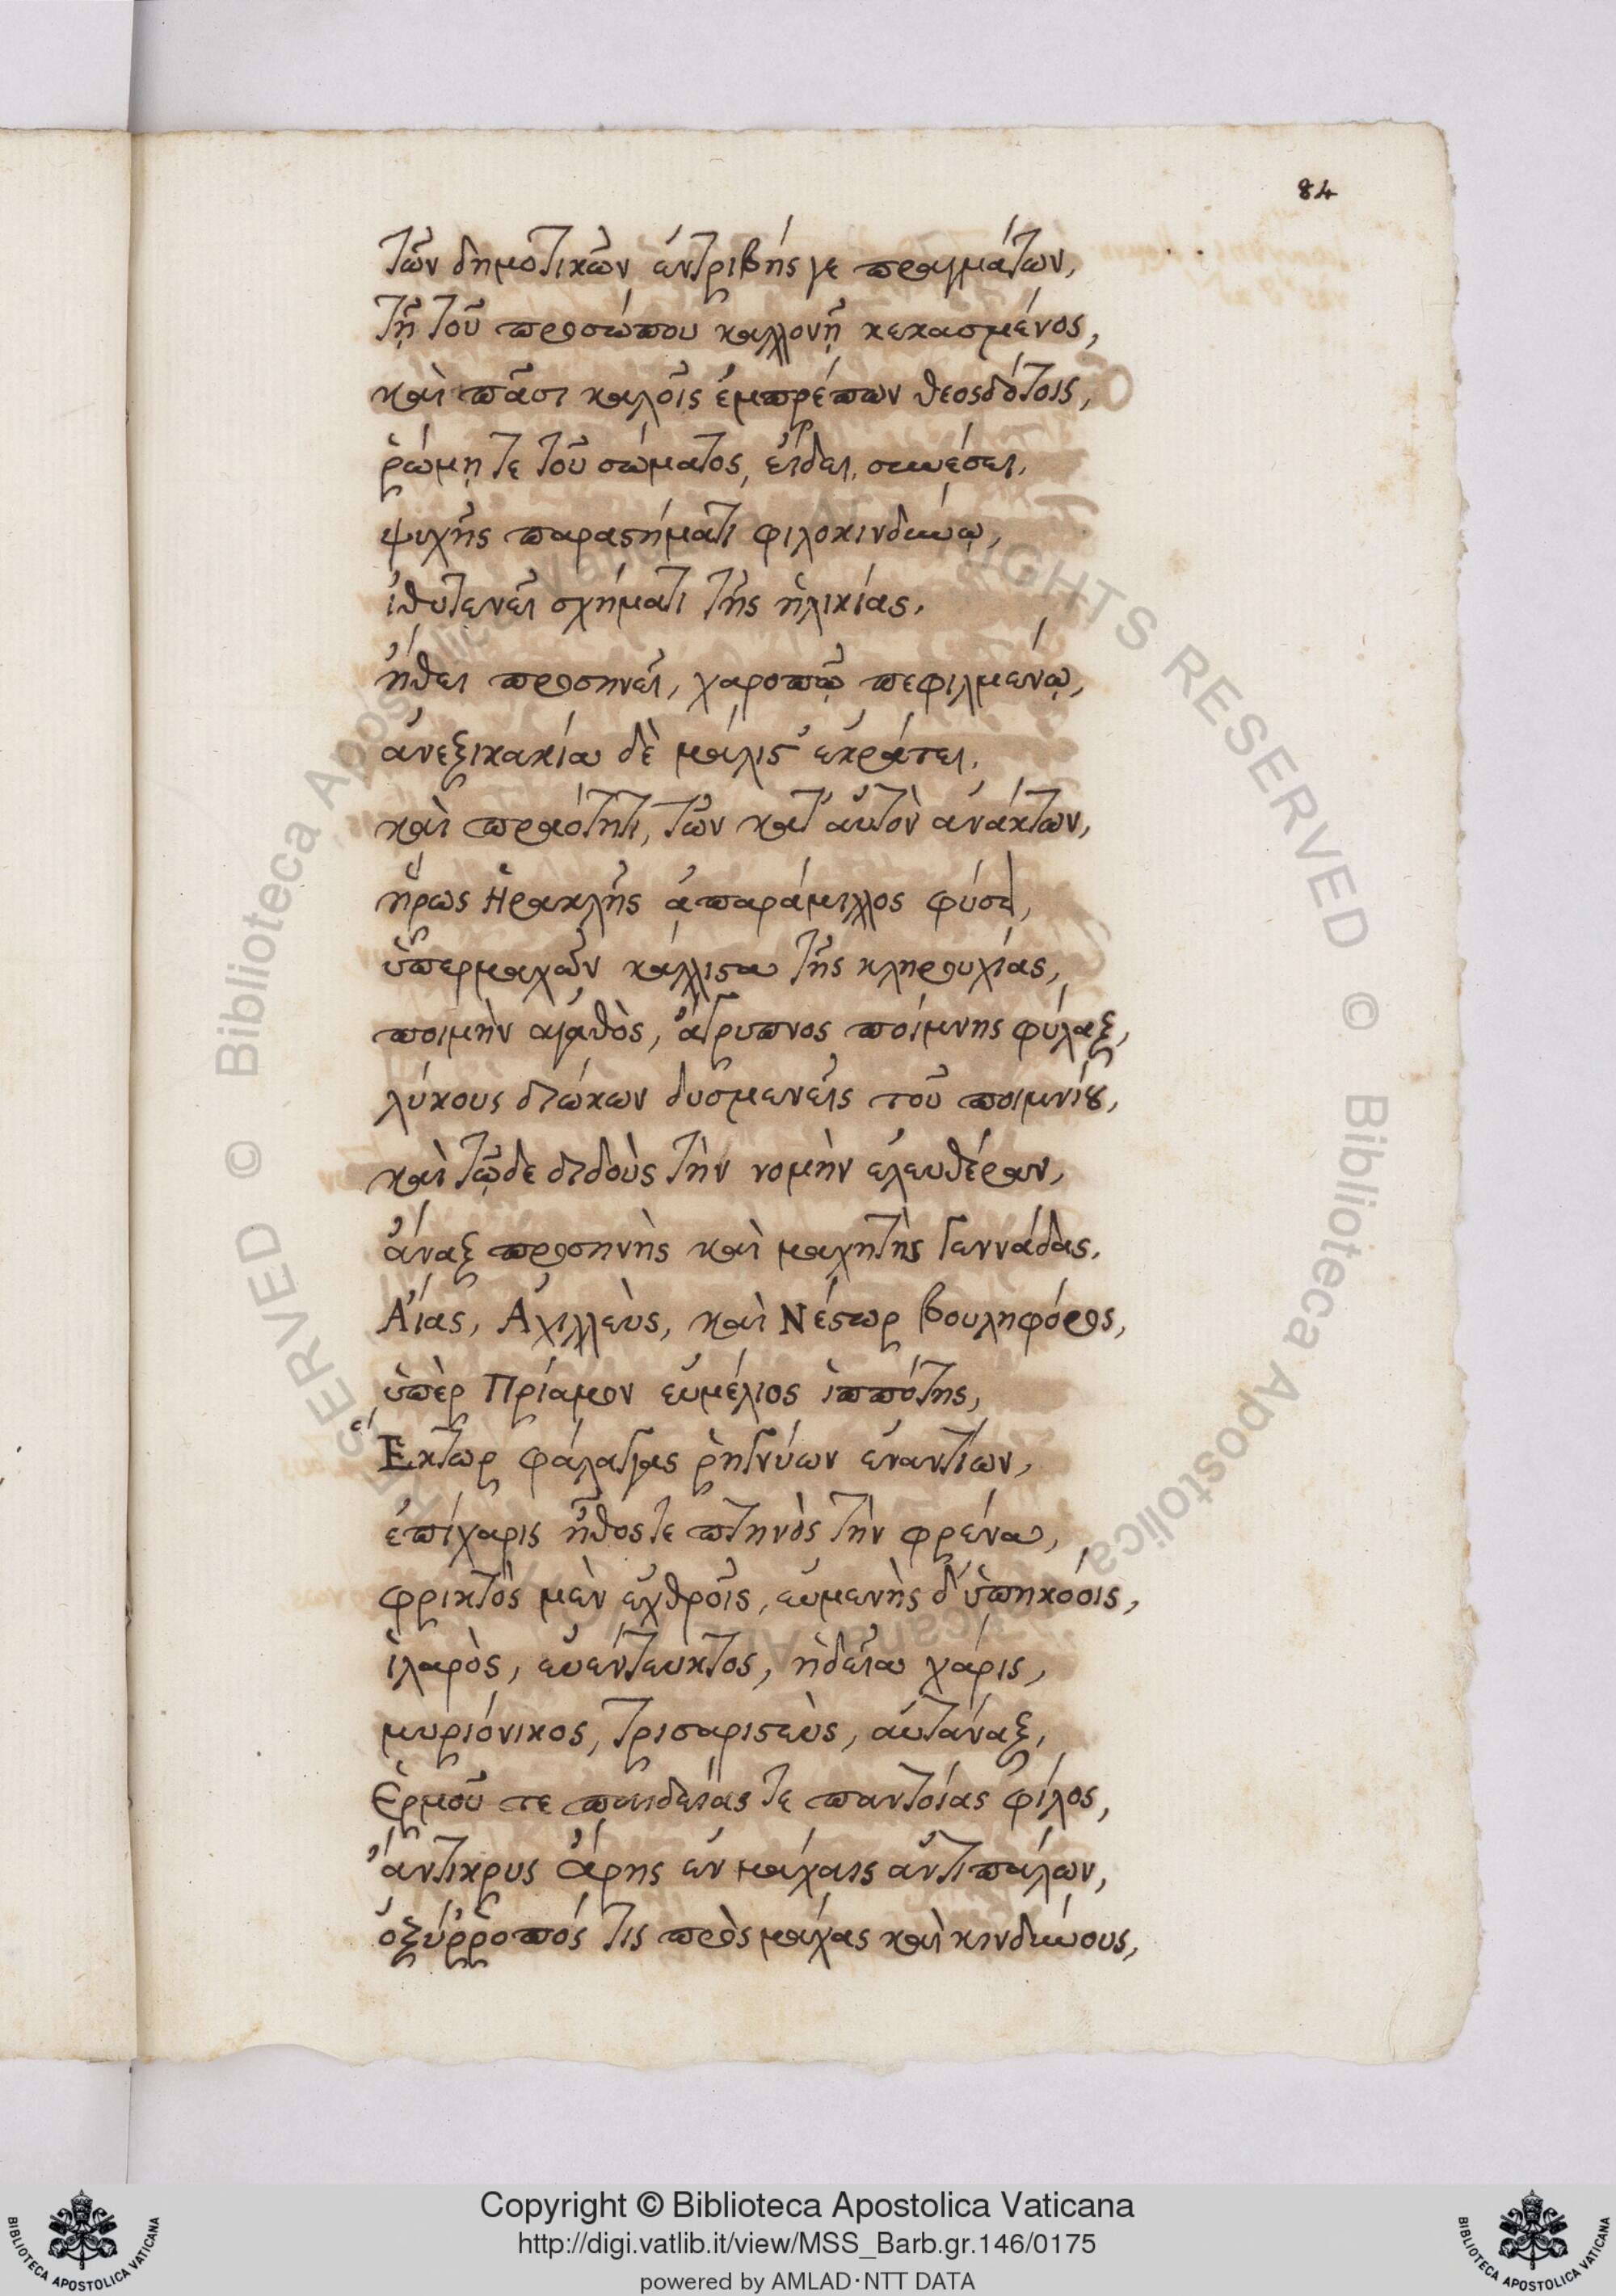 84
τῶν δημοτικῶν ἐντριβής γε πραγμάτων,
τῇ τοῦ προσώπου καλλονῇ κεκασμένος,
καὶ πᾶσι καλοῖς ἐμπρέπων θεοσδότοις,
ῥώμῃ τε τοῦ σώματος, εἴδει, συνέσει,
ψυχῆς παραστήματι φιλοκινδύνῳ,
ἰθυτενεῖ σχήματι τῆς ἡλικίας,
ἤθει προσηνεῖ, χαροπῷ πεφιλμένῳ,
ἀνεξικακία δὲ μάλιστ' ἐκράτει,
καὶ πραότητι, τῶν κατ' αὐτὸν ἀνάκτων,
ἥρως Ἡρακλῆς ἀπαράμιλλος φύσει,
ὑπερμαχῶν κάλλιστα τῆς κληρουχίας,
ποιμὴν ἀγαθὸς, ἄγρυπνος ποίμνης φύλαξ,
λύκους διώκων δυσμενεῖς τοῦ ποιμνίου,
καὶ τῷδε διδοὺς τὴν νομὴν ἐλευθέραν,
ἄναξ προσηνὴς καὶ μαχητὴς γεννάδας,
Αἴας, Ἀχιλλεὺς, καὶ Νέστωρ βουληφόρος,
ὑπὲρ Πρίαμον εὐμέλιος ἱππότης,
Ἕκτωρ φάλαγγας ῥηγνύων ἐναντίων,
ἐπίχαρις ἦθος τε πτηνὸς τὴν φρένα,
φρικτὸς μὲν ἐχθροῖς, εὐμενὴς δ' ὑπηκόοις,
ἱλαρὸς, εὐέντευκτος, ἡδεῖα χάρις,
μυριόνικος, τρισαριστεὺς, αὐτάναξ,
Ἑρμοῦ τε παιδείας τε παντοίας φίλος,
ἄντικρυς ἄρης ἐν μάχαις ἀντιπάλων,
ὀξύρροπός τις πρὸς μάχας καὶ κινδύνους,
Copyright © Biblioteca Apostolica Vaticana
http://digi.vatlib.it/view/MSS_Barb.gr.146/0175
powered by AMLAD·NTT DATA